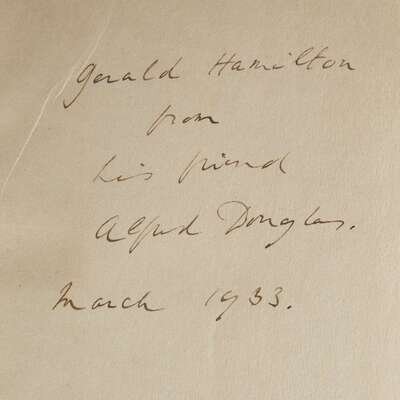 Gerald Hamilton
from
his friend
Alfred Douglas.
March 1933.